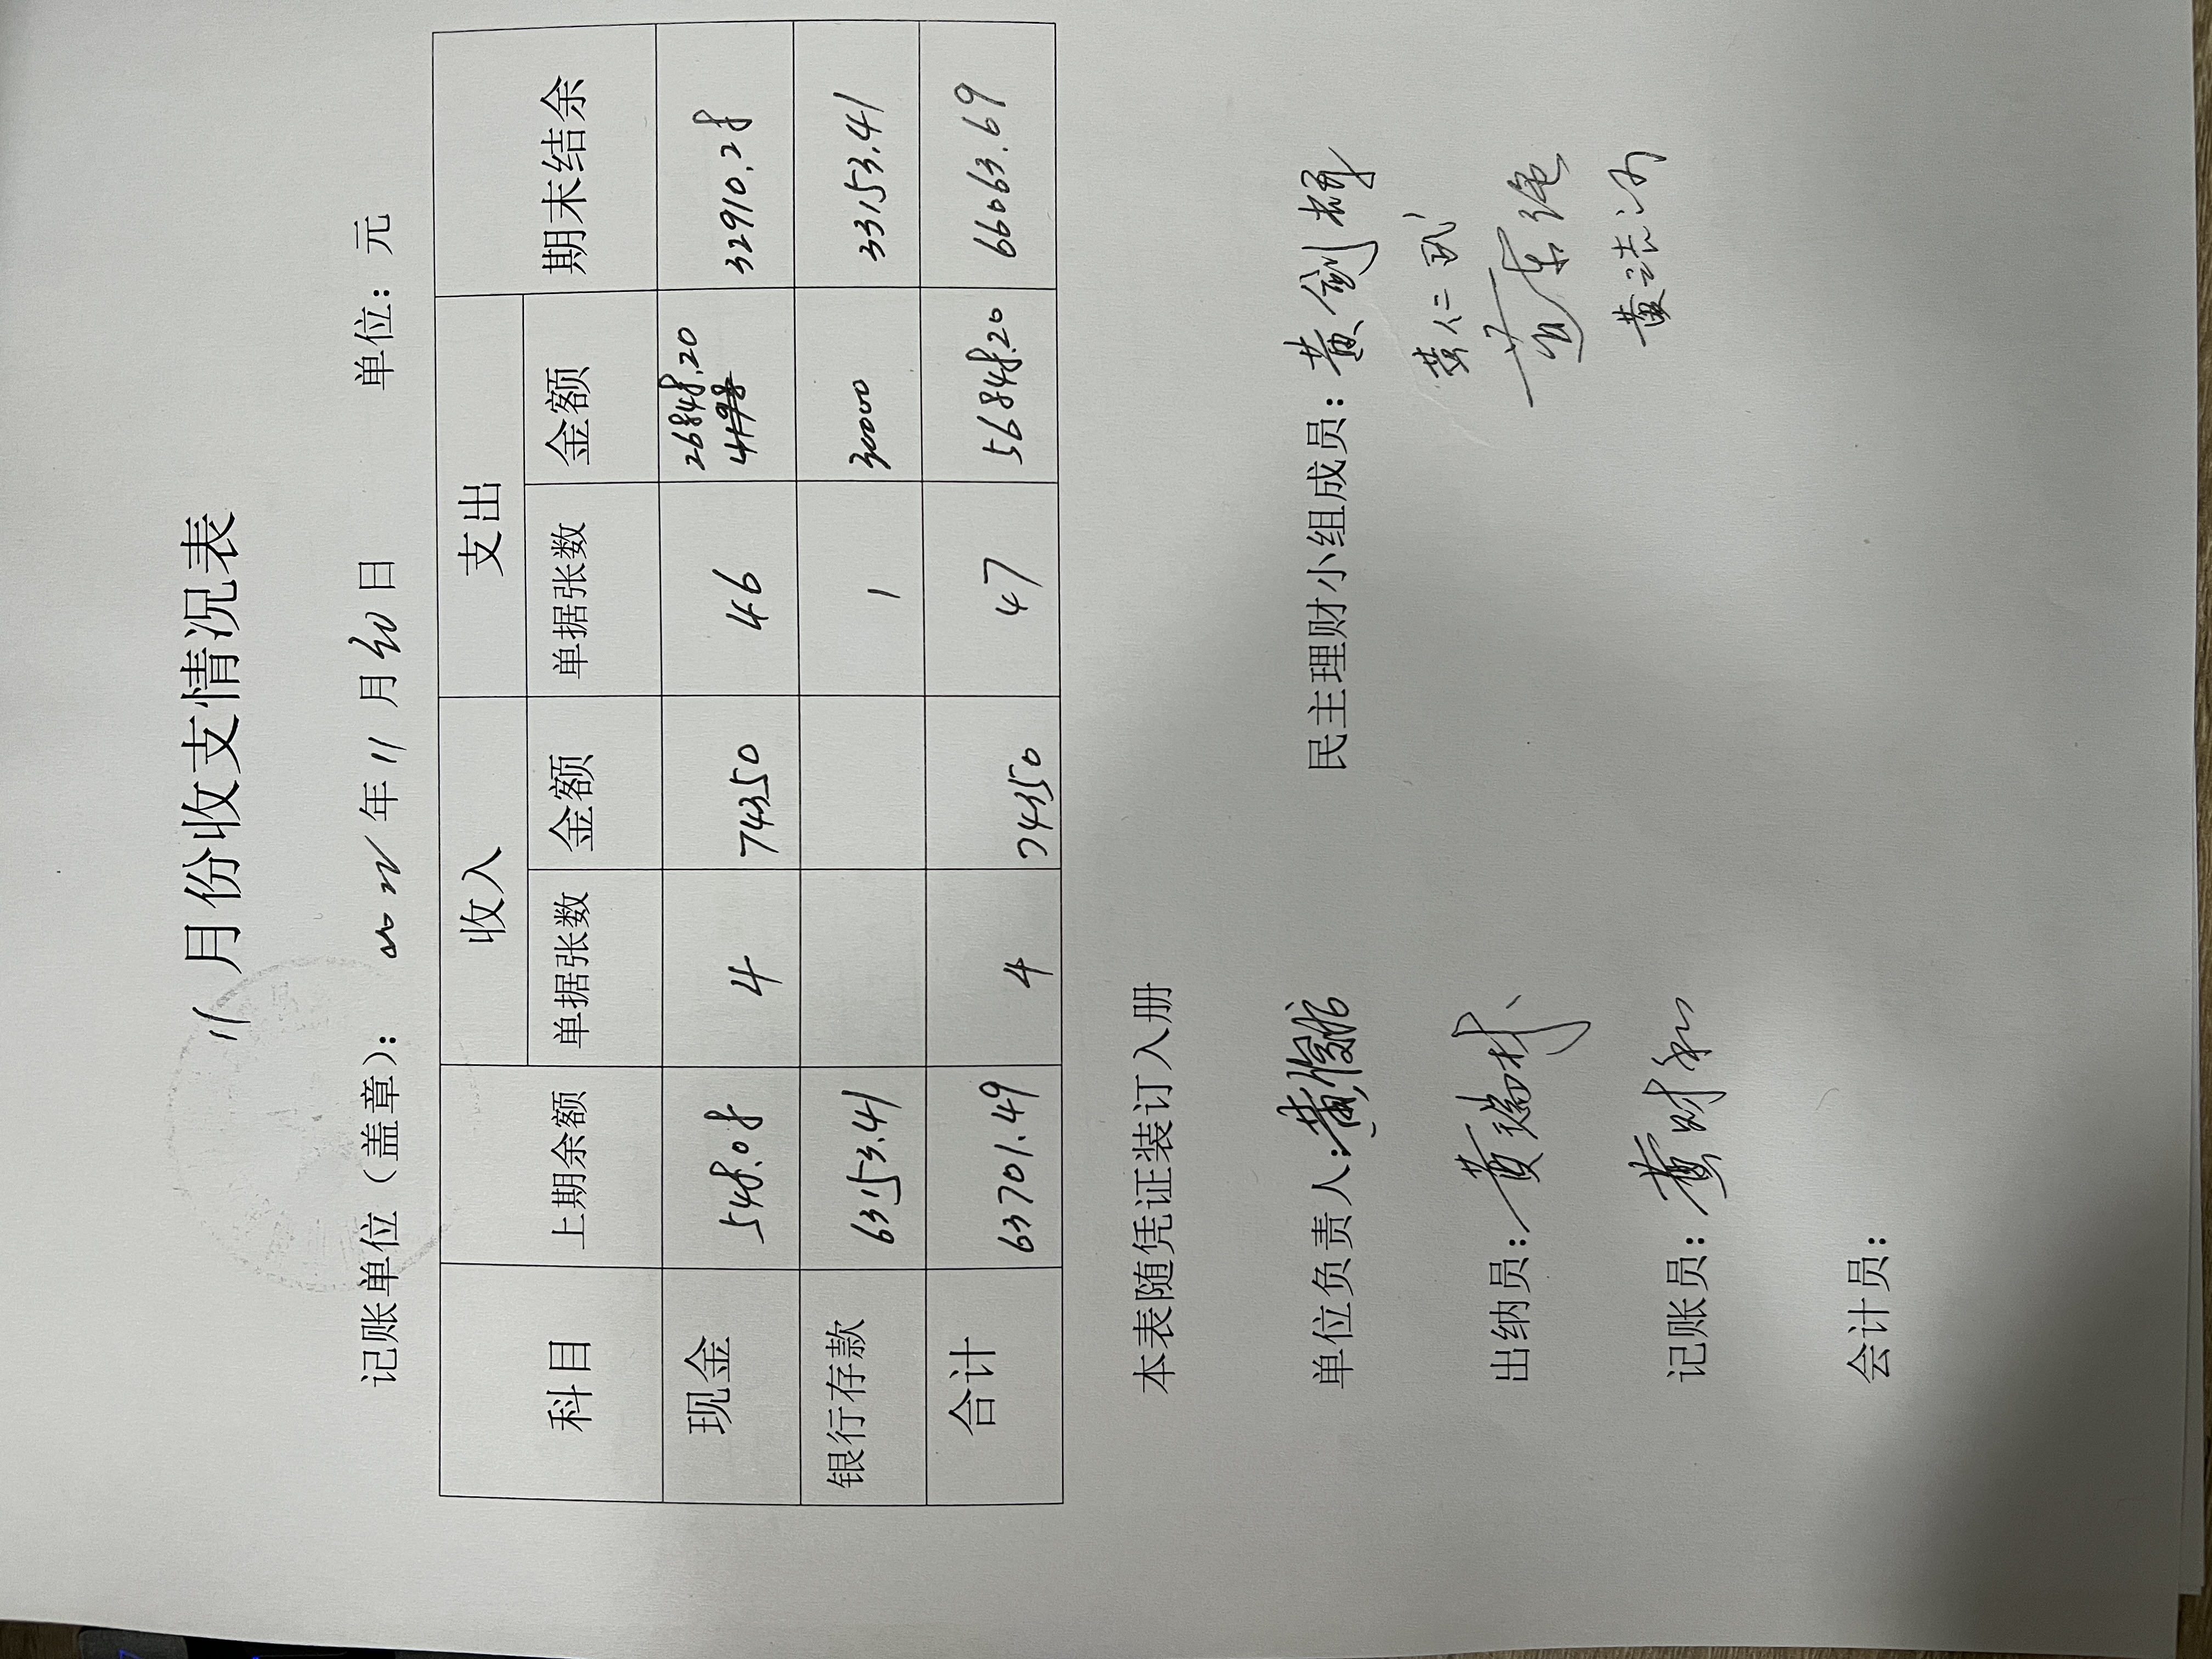 11月份收支情况表
记账单位（盖章）： 年11月30日 单位：元
科目 上期余额 收入 支出 期末结余
单据张数 金额 单据张数 金额
现金 548.08 4 74350 46 26848.20 32910.28
银行存款 63153.41 1 30000 33153.41
合计 63701.49 4 74350 47 56848.20 66063.69
本表随凭证装订入册
单位负责人： 民主理财小组成员：黄剑辉
出纳员：黄瑞林
记账员：黄财和
会计员：